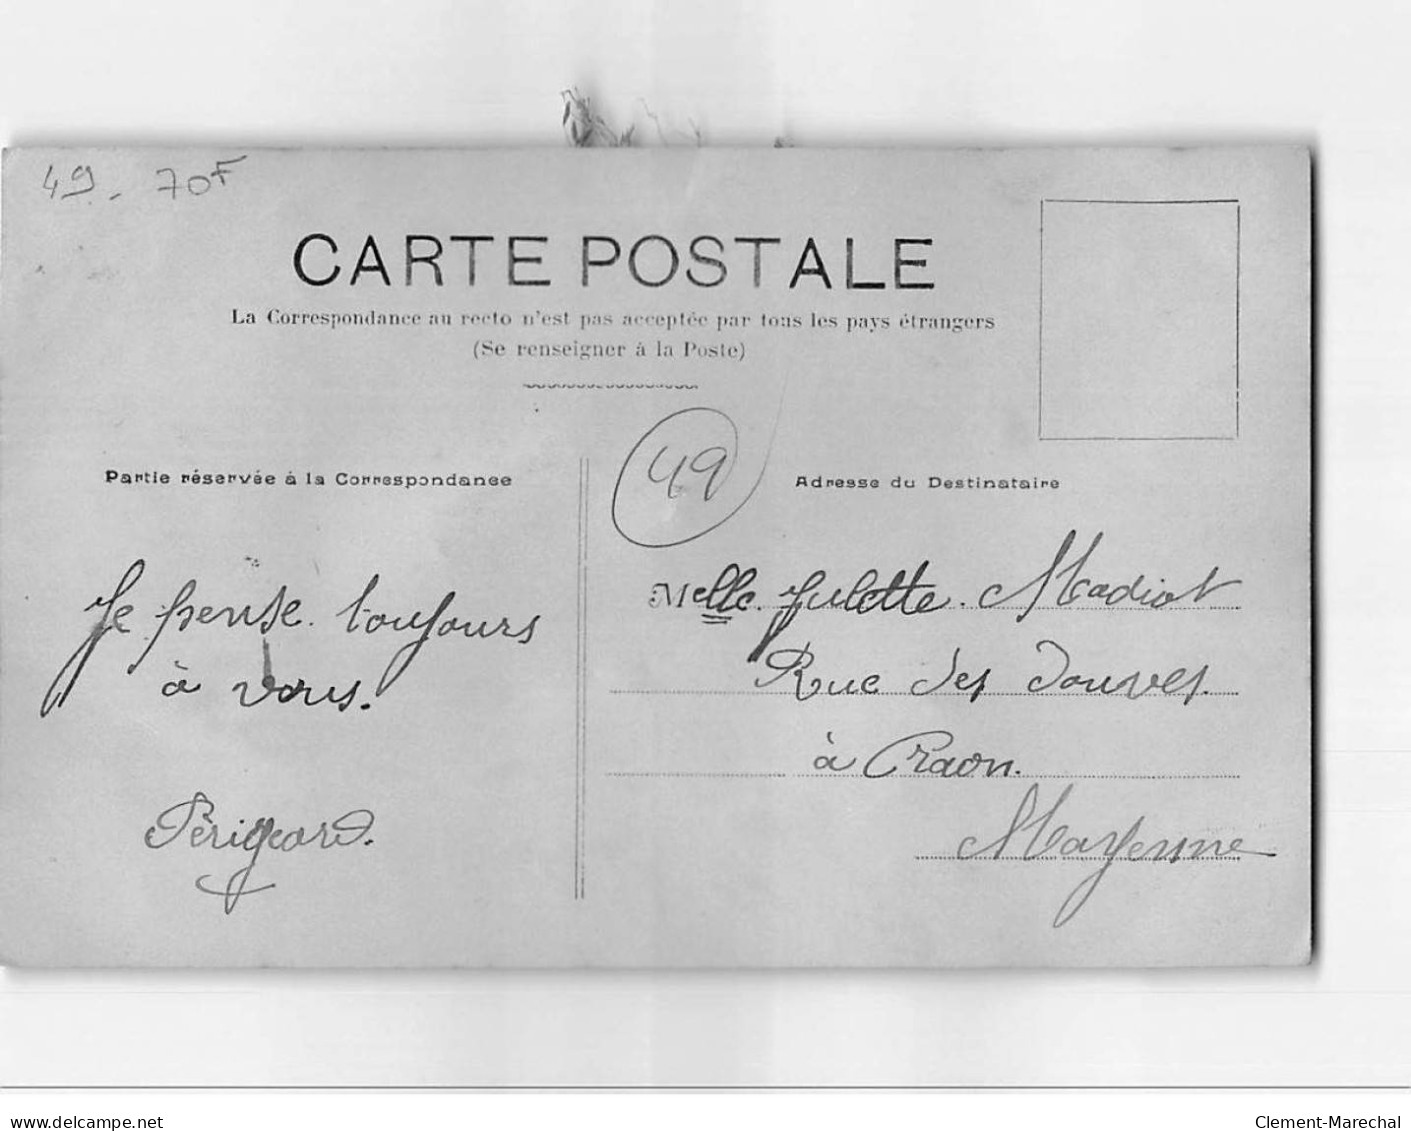 49. 70F
CARTE POSTALE
La Correspondance au recto n'est pas acceptée par tous les pays étrangers
(Se renseigner à la Poste)
49
Partie réservée à la Correspondance
Adresse du Destinataire
Je pense toujours
à vous.
Périgeard.
Melle. Julette. Madiot
Rue des Douves.
à Craon.
Mayenne
www.delcampe.net
Clement-Marechal